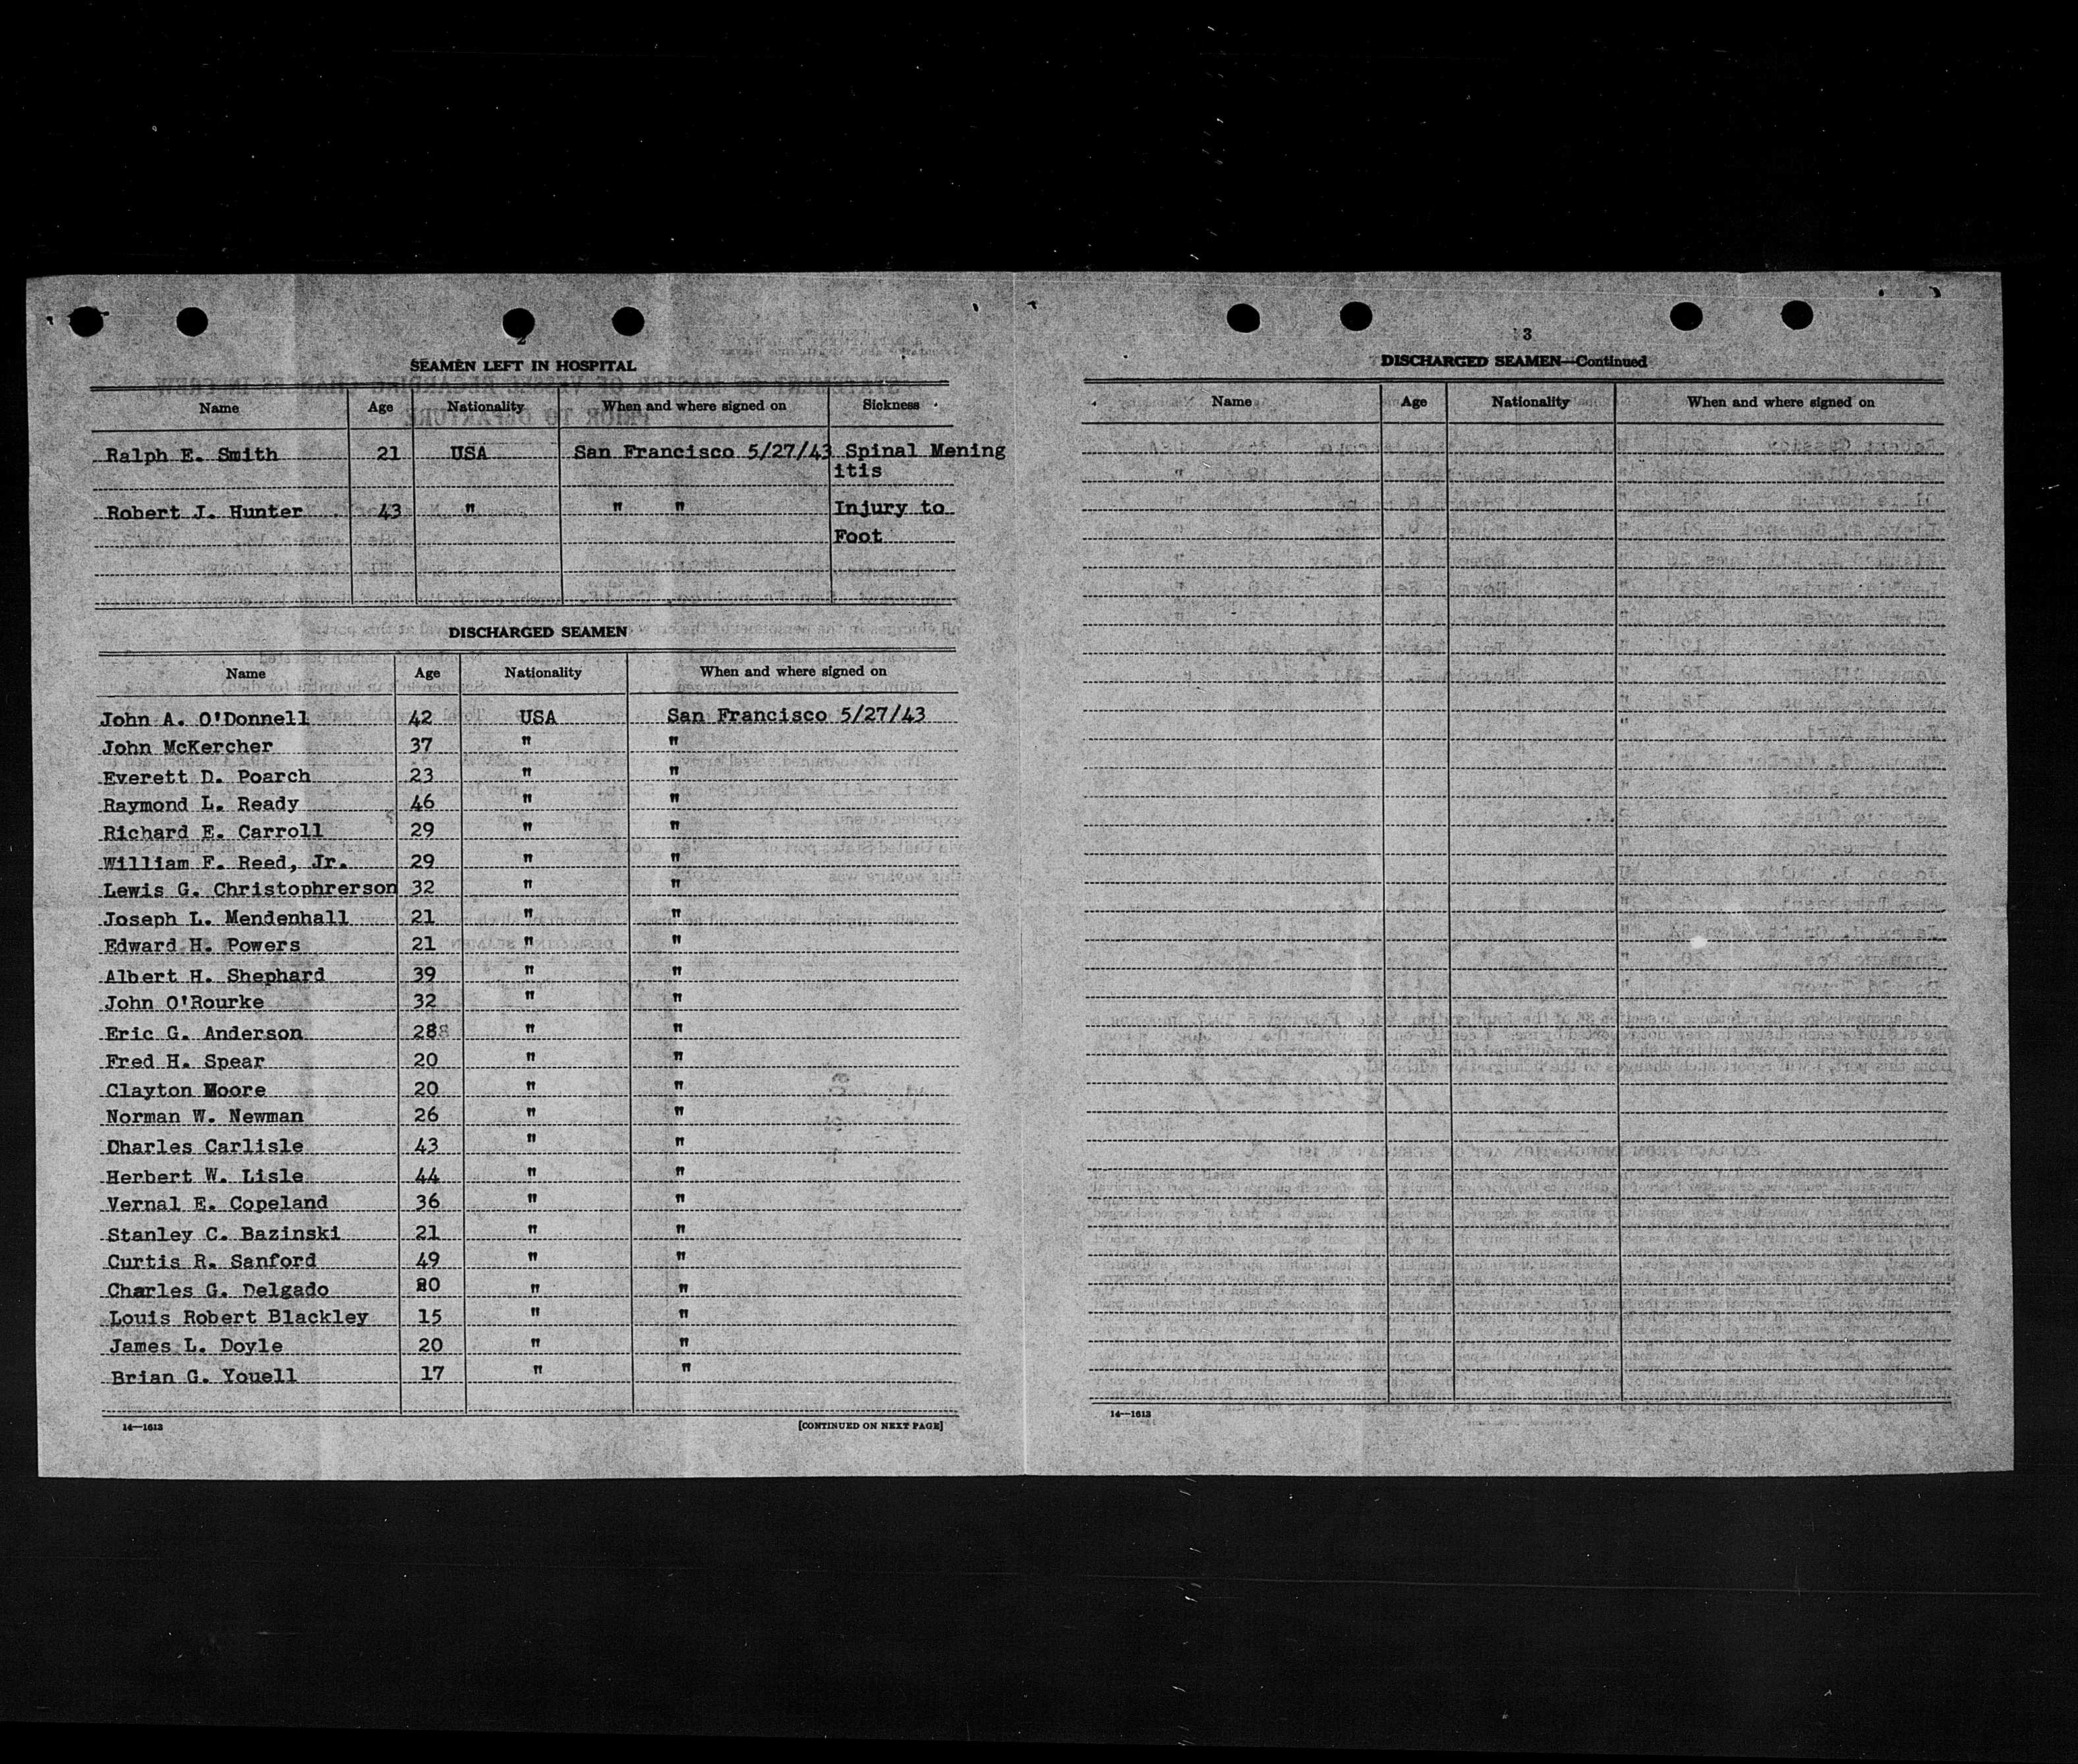 2
SEAMEN LEFT IN HOSPITAL
Name Age Nationality When and where signed on Sickness
Ralph E. Smith 21 USA San Francisco 5/27/43 Spinal Mening
itis
Robert J. Hunter 43 " " " Injury to
Foot
DISCHARGED SEAMEN
Name Age Nationality When and where signed on
John A. O'Donnell 42 USA San Francisco 5/27/43
John McKercher 37 " "
Everett D. Poarch 23 " "
Raymond L. Ready 46 " "
Richard E. Carroll 29 " "
William F. Reed, Jr. 29 " "
Lewis G. Christophrerson 32 " "
Joseph L. Mendenhall 21 " "
Edward H. Powers 21 " "
Albert H. Shephard 39 " "
John O'Rourke 32 " "
Eric G. Anderson 28 " "
Fred H. Spear 20 " "
Clayton Moore 20 " "
Norman W. Newman 26 " "
Charles Carlisle 43 " "
Herbert W. Lisle 44 " "
Vernal E. Copeland 36 " "
Stanley C. Bazinski 21 " "
Curtis R. Sanford 49 " "
Charles G. Delgado 20 " "
Louis Robert Blackley 15 " "
James L. Doyle 20 " "
Brian G. Youell 17 " "
14—1613 [CONTINUED ON NEXT PAGE]
3
DISCHARGED SEAMEN—Continued
Name Age Nationality When and where signed on
14—1613